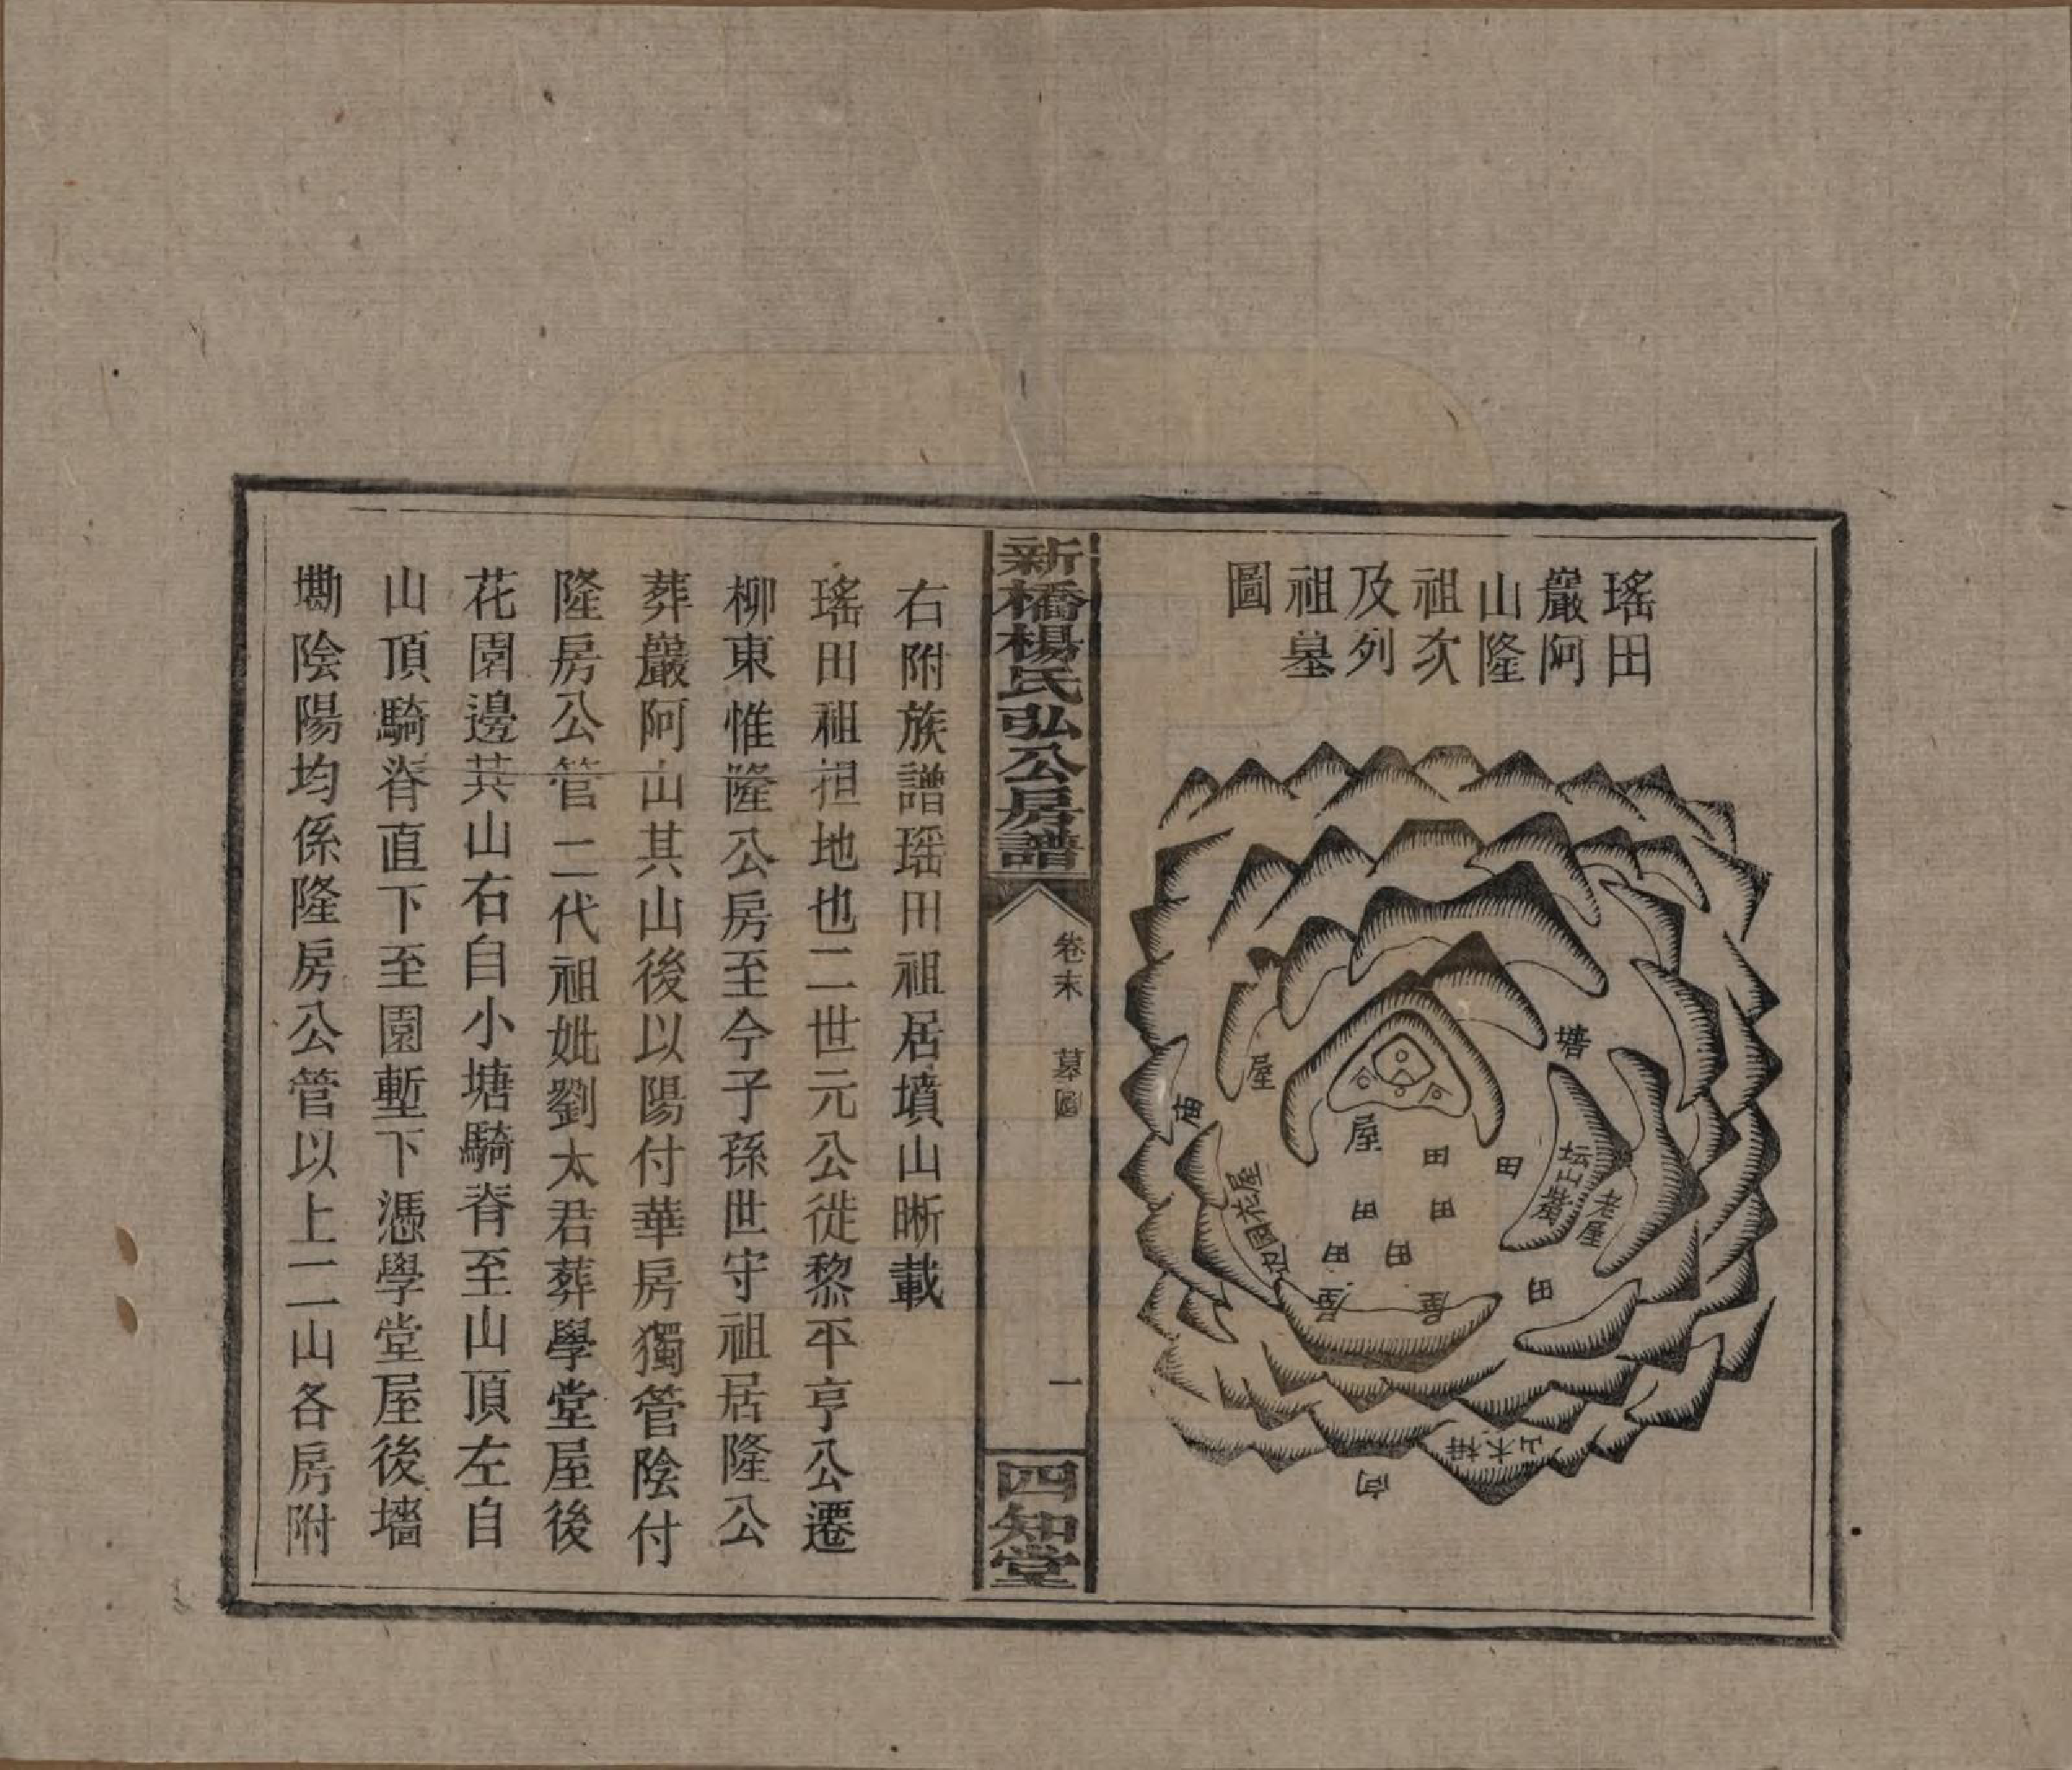 瑤田
巖阿
山隆
祖次
及列
祖墓
圖
塘
屋
庙
屋
田
田
田
田
田
田
田
坛山嶺
老屋
屋花園边
屋
屋
山木梓
向
新橋楊氏弘公房譜
卷末
墓圖
一
四知堂
右附族譜瑤田祖居墳山晰載
瑤田祖担地也二世元公徙黎平亨公遷
柳東惟隆公房至今子孫世守祖居隆公
葬巖阿山其山後以陽付華房獨管陰付
隆房公管二代祖妣劉太君葬學堂屋後
花園邊其山右自小塘騎脊至山頂左自
山頂騎脊直下至園塹下憑學堂屋後墻
墈陰陽均係隆房公管以上二山各房附